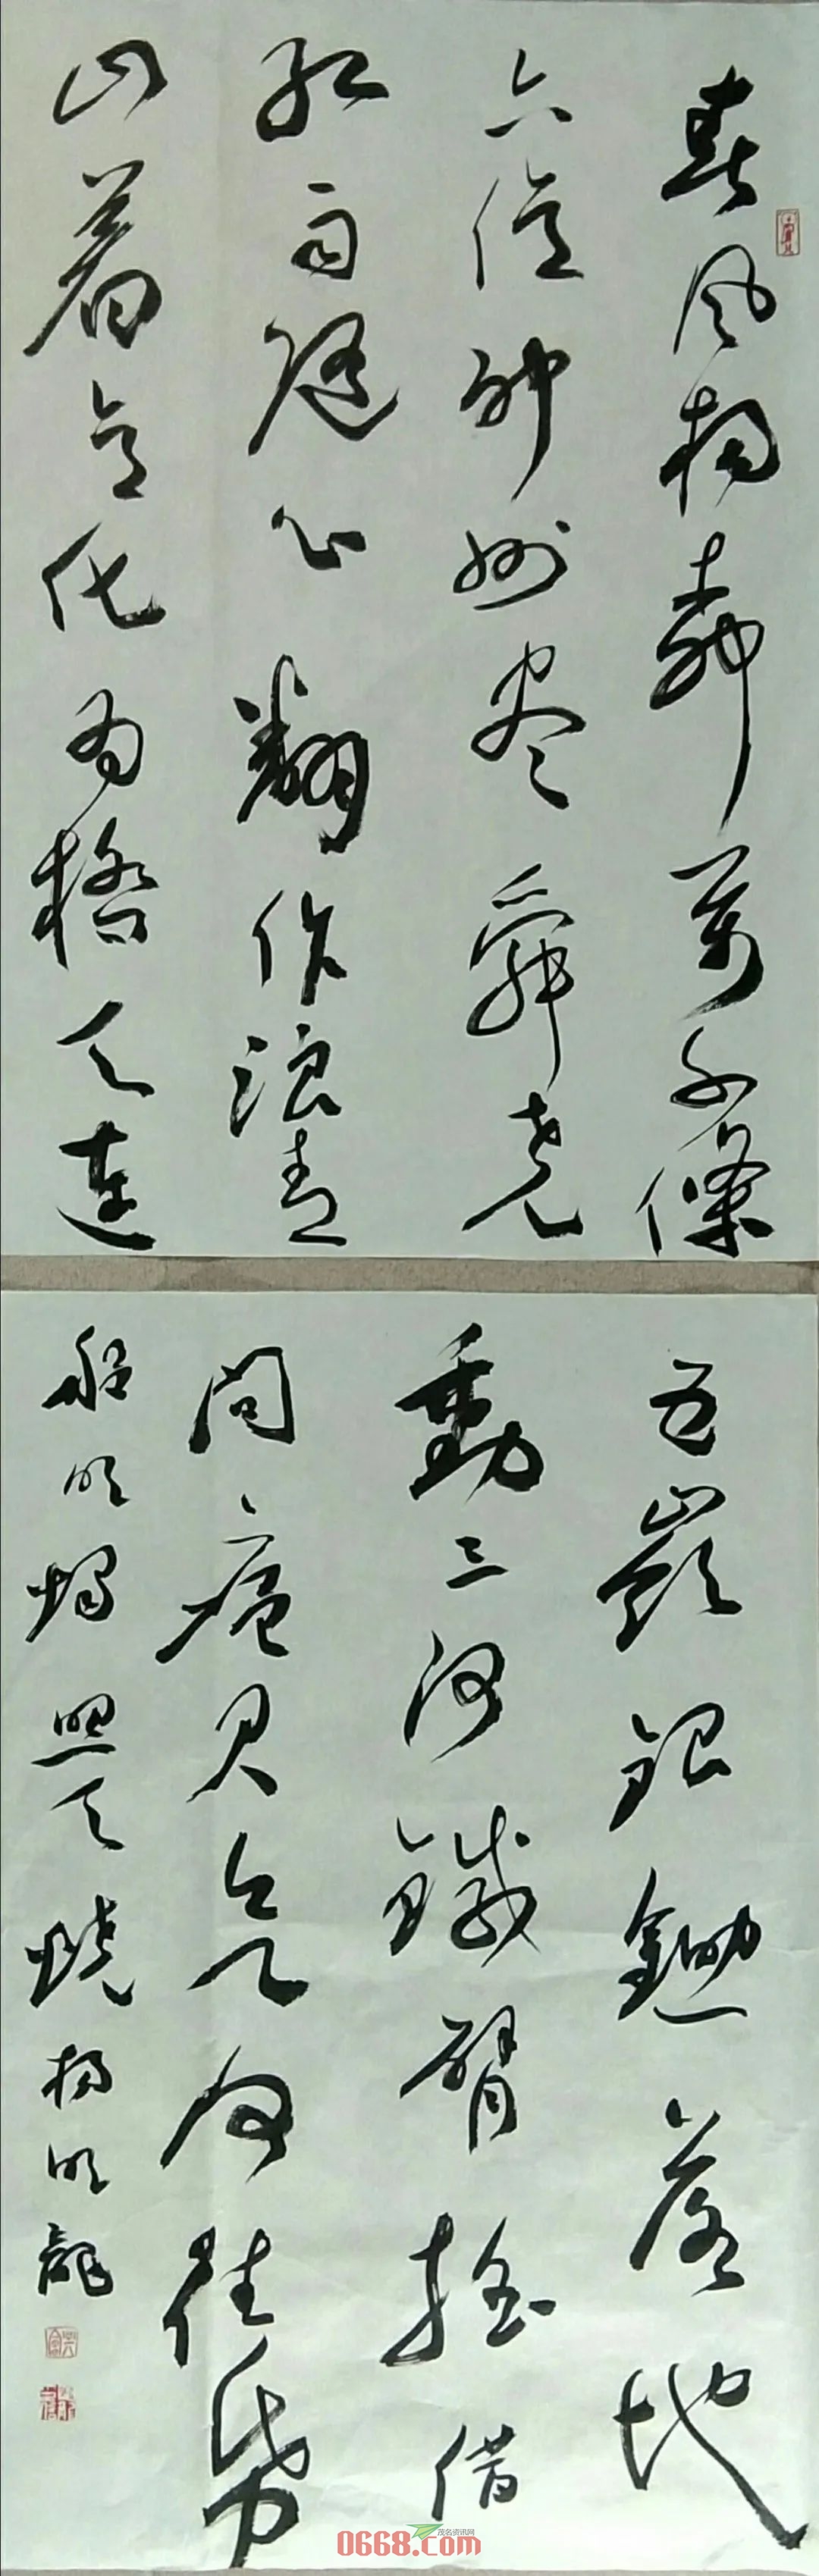 春风杨柳万千條
六億神州尽舜尧
红雨随心翻作浪青
山着意化为桥天连
五嶺银鋤落地
動三河鐵臂摇借
问瘟君欲何往纸
船明烛照天烧 杨明龍
茂名资讯网
0668.com